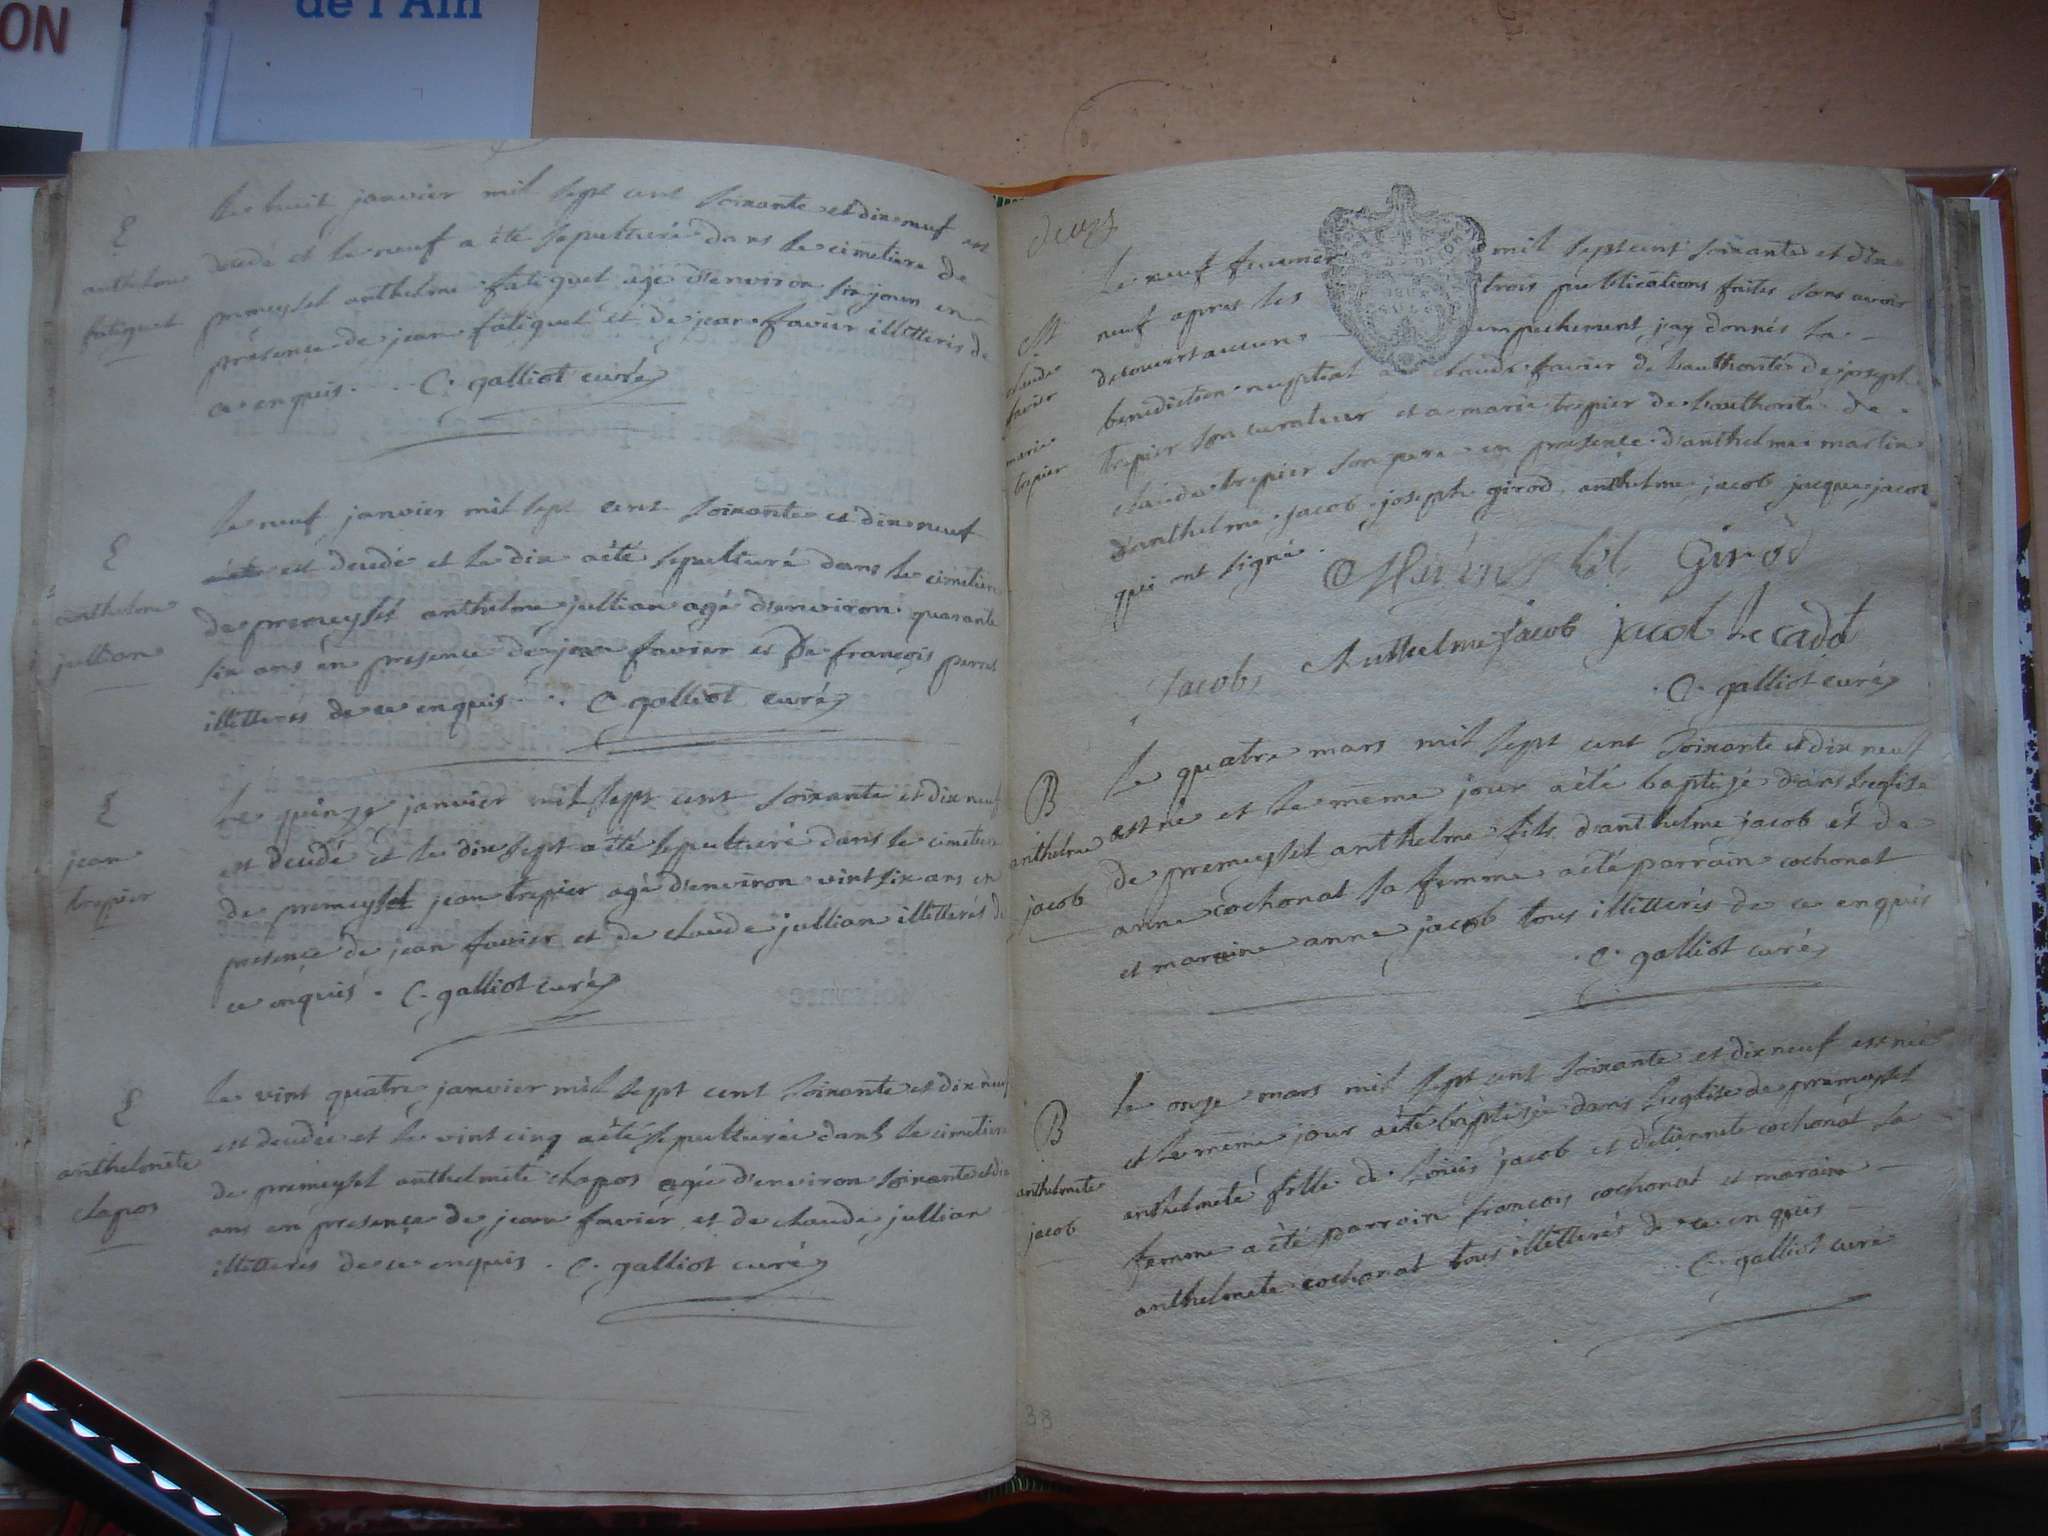 ON
de l'Ain
le huit janvier mil sept cent soixante et dix neuf est
E
anthelme
fatiguet
decedé et le neuf a été sepulturé dans le cimetiere de
premeysel anthelme fatiguet agé d'environ six jours en
présence de jean fatiguet et de jean favier illitterés de
ce enquis. C. galliot curé
le neuf janvier mil sept cent soixante et dix neuf
E
anthelme
jullian
est decedé et le dix a été sepulturé dans le cimetiere
de premeysel anthelme jullian agé d'environ quarante
six ans en presence de jean favier et de françois perret
illitterés de ce enquis. C. galliot curé
E
jean
trepier
le quinze janvier mil sept cent soixante et dix neuf
est decedé et le dix sept a été sepulturé dans le cimetiere
de premeysel jean trepier agé d'environ vint six ans en
presence de jean favier et de claude jullian illitterés de
ce enquis. C. galliot curé
E
anthelmete
chapos
le vint quatre janvier mil sept cent soixante et dix neuf
est decedée et le vint cinq a été sepulturée dans le cimetiere
de premeysel anthelmete chapos agée d'environ soixante et dix
ans en presence de jean favier et de claude jullian
illitterés de ce enquis. C. galliot curé
deux
M
claude
favier
marie
trepier
le neuf fevrier mil sept cent soixante et dix
neuf apres les trois publications faites sans avoir
decouvert aucun empechement j'ay donnés la
benediction nuptial a claude favier de l'authorité de joseph
trepier son curateur et a marie trepier de l'authorité de
claude trepier son pere en presence d'anthelme martin
d'anthelme jacob joseph girod anthelme jacob jacque jacob
qui ont signé.
Girod
Jacob Anthelme jacob jacob le cadot
C. galliot curé
B
anthelme
jacob
le quatre mars mil sept cent soixante et dix neuf
est né et le même jour a été baptisé dans l'eglise
de premeysel anthelme fils d'anthelme jacob et de
anne cochonat sa femme a été parrain cochonat
et maraine anne jacob tous illitterés de ce enquis
C. galliot curé
B
anthelmete
jacob
le onze mars mil sept cent soixante et dix neuf est née
et le même jour a été baptisée dans l'eglise de premeysel
anthelmete fille de Louis jacob et d'etiennete cochonat sa
femme a été parrain francois cochonat et maraine
anthelmete cochonat tous illitterés de ce enquis
C. galliot curé
38